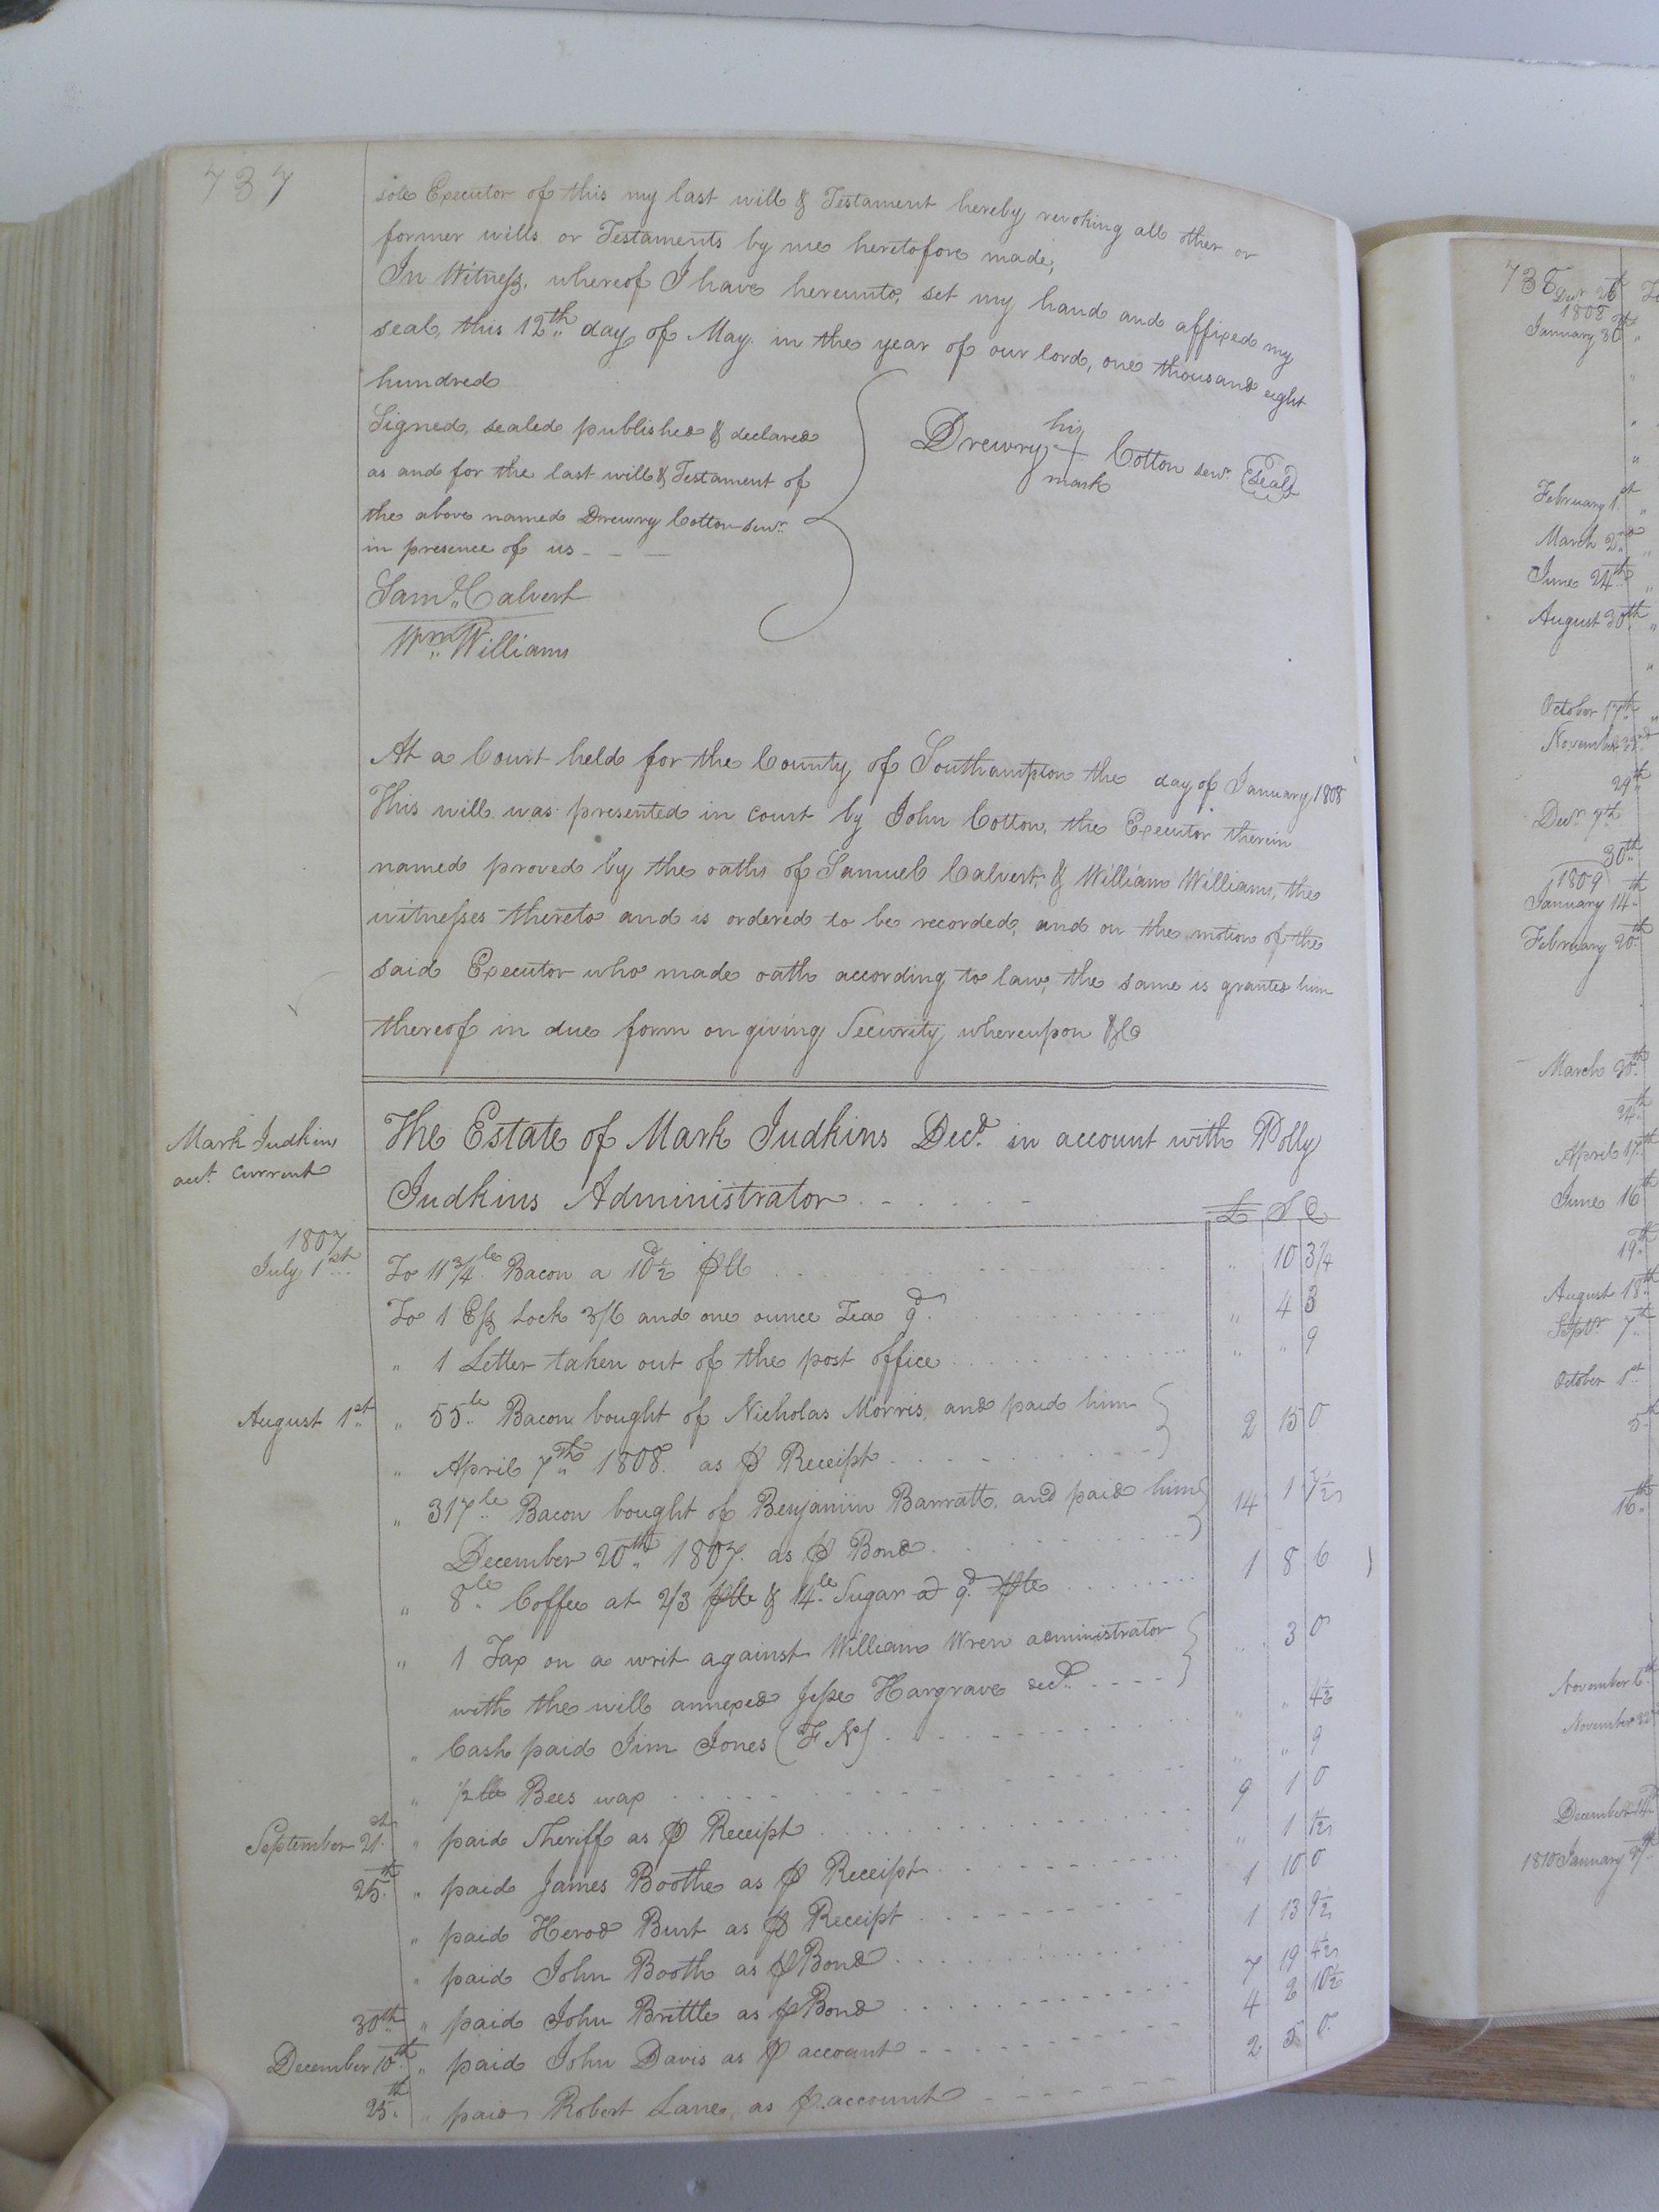 737
sole Executor of this my last will & Testament hereby revoking all other or
former wills or Testaments by me heretofore made,
In Witness, whereof I have hereunto, set my hand and affixed my
seal, this 12th day of May in the year of our lord, one thousand eight
hundred
Signed, sealed published & declared
as and for the last will & Testament of
the above named Drewry Cotton senr.
in presence of us - - -
Drewry his + mark Cotton senr. (Seal)
Saml. Calvert
Wm. Williams
At a Court held for the County of Southampton the day of January 1808
This will was presented in court by John Cotton, the Executor therein
named proved by the oaths of Samuel Calvert, & William Williams, the
witnesses thereto and is ordered to be recorded, and on the motion of the
said Executor who made oath according to law, the same is granted him
thereof in due form on giving Security whereupon &c
Mark Judkins
acct. current
The Estate of Mark Judkins Decd. in account with Polly
Judkins Administrator - - - - -
£ S D
1807
July 1st To 11 3/4 le Bacon a 10 1/2 d ⅌ lb " 10 3 1/4
To 1 Ess Lock 3/6 and one ounce Tea 9d " 4 3
" 1 Letter taken out of the post office " " 9
August 1st " 55 le Bacon bought of Nicholas Morris, and paid him
" April 7th 1808 as ⅌ Receipt 2 15 0
" 317 le Bacon bought of Benjamin Barratt, and paid him
December 20th 1807. as ⅌ Bond 14 1 7 1/2
" 8 le Coffee at 2/3 ⅌ le & 14 le Sugar a 9d ⅌ le 1 8 6
" 1 Tax on a writ against William Wren administrator
with the will annexed Jesse Hargrave decd. " 3 0
" Cash paid Jim Jones (F N) " " 4 1/2
" 1/2 lb Bees wax " " 9
September 21st " paid Sheriff as ⅌ Receipt 9 1 0
25th " paid James Boothe as ⅌ Receipt " 1 1/2
" paid Herod Burt as ⅌ Receipt 1 10 0
" paid John Booth as ⅌ Bond 1 13 9 1/2
30th " paid John Brittle as ⅌ Bond 7 19 4 1/2
December 10th " paid John Davis as ⅌ account 4 2 10 1/2
25th " paid Robert Lane, as ⅌ account 2 5 0
738
Decr 26th
1808
January 30th
February 1st
March 2nd
June 24th
August 30th
October 17th
November
29th
Decr 7th
30th
1809
January 14th
February 20th
March 20th
24th
April 17th
June 16th
19th
August 18th
Septr 7th
October 1st
5th
16th
November 6th
November 22
December
1810 January